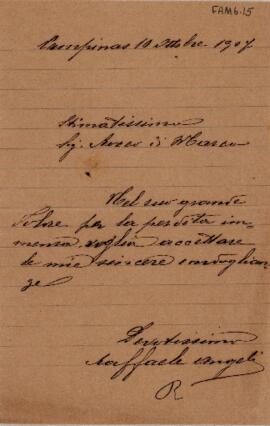 FAM6.15
Campinas 10 Ottbre. 1907
Stimatissimo
Sig.
Nel suo grande
dolore per la perdita im-
mensa voglia accettare
le mie sincere condoglian-
ze
Devotissimo
Raffaele Angeli